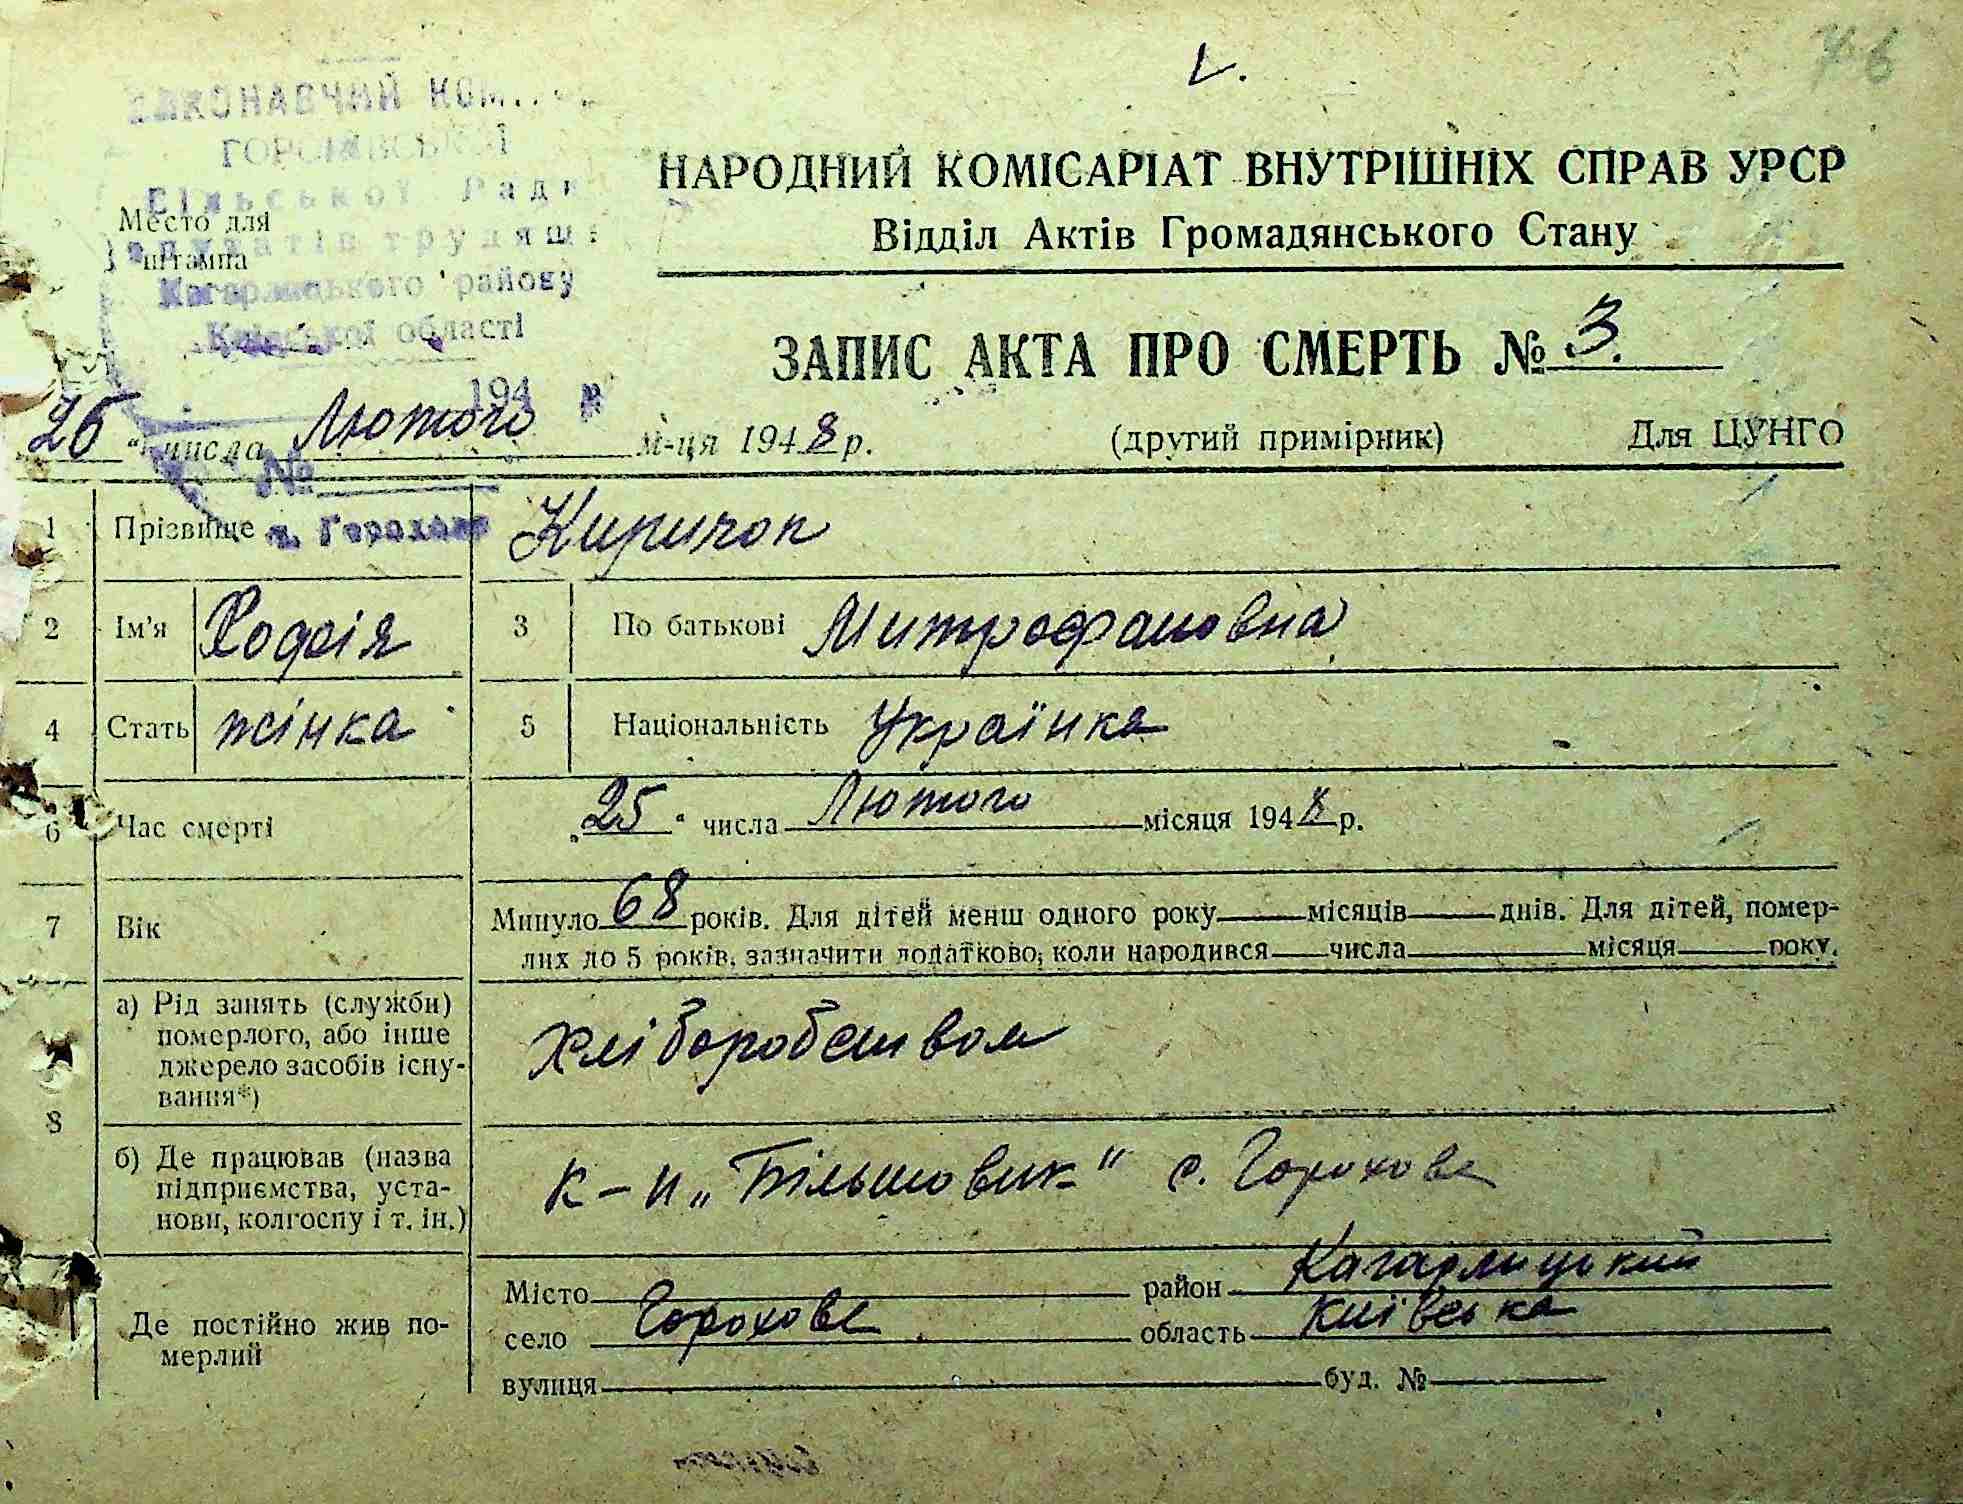 76
ВИКОНАВЧИЙ
Сільської Ради
Место для
штампа
Кагарлицького району
Київської області
194 р
№
с. Горохове
НАРОДНИЙ КОМІСАРІАТ ВНУТРІШНІХ СПРАВ УРСР
Відділ Актів Громадянського Стану
ЗАПИС АКТА ПРО СМЕРТЬ № 3.
26 " числа Лютого м-ця 1948 р. (другий примірник) Для ЦУНГО
1 Прізвище Киричок
2 Ім'я Софія 3 По батькові Митрофановна
4 Стать жінка 5 Національність Українка
6 Час смерті „25" числа Лютого місяця 1948 р.
7 Вік Минуло 68 років. Для дітей менш одного року місяців днів. Для дітей, помер-
лих до 5 років, зазначити додатково, коли народився числа місяця року.
8 а) Рід занять (служби)
померлого, або інше
джерело засобів існу-
вання*)
хліборобством
б) Де працював (назва
підприємства, уста-
нови, колгоспу і т. ін.)
к-п „Більшовик" с. Горохове
Де постійно жив по-
мерлий
Місто район Кагарлицький
село Горохове область Київська
вулиця буд. №